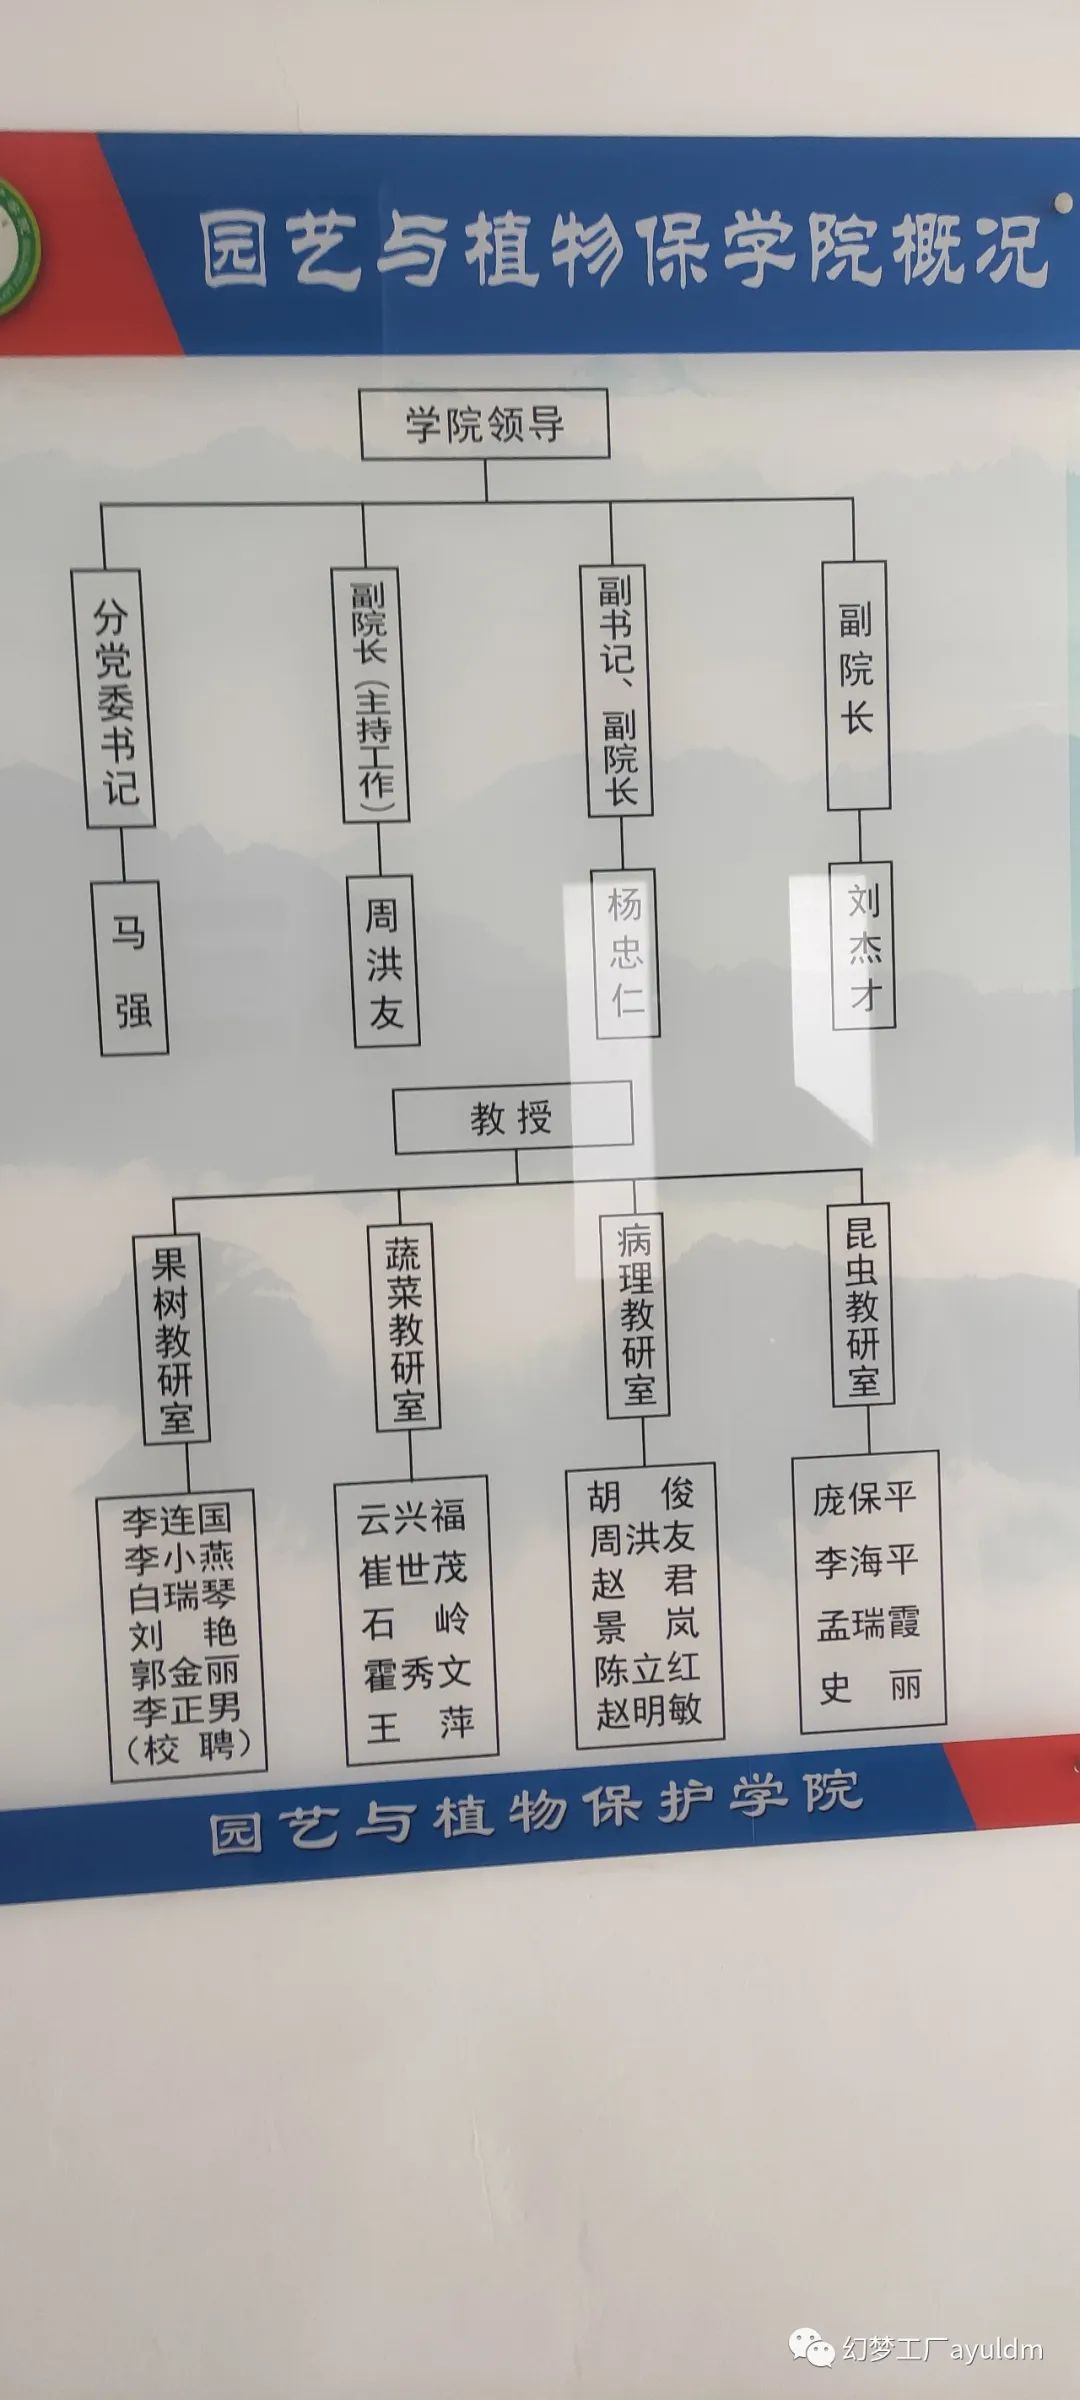 园艺与植物保学院概况
学院领导
分党委书记
副院长（主持工作）
副书记、副院长
副院长
马强
周洪友
杨忠仁
刘杰才
教授
果树教研室
蔬菜教研室
病理教研室
昆虫教研室
李连国
李小燕
白瑞琴
刘艳
郭金丽
李正男
（校聘）
云兴福
崔世茂
石岭
霍秀文
王萍
胡俊
周洪友
赵君
景岚
陈立红
赵明敏
庞保平
李海平
孟瑞霞
史丽
园艺与植物保护学院
幻梦工厂ayuldm